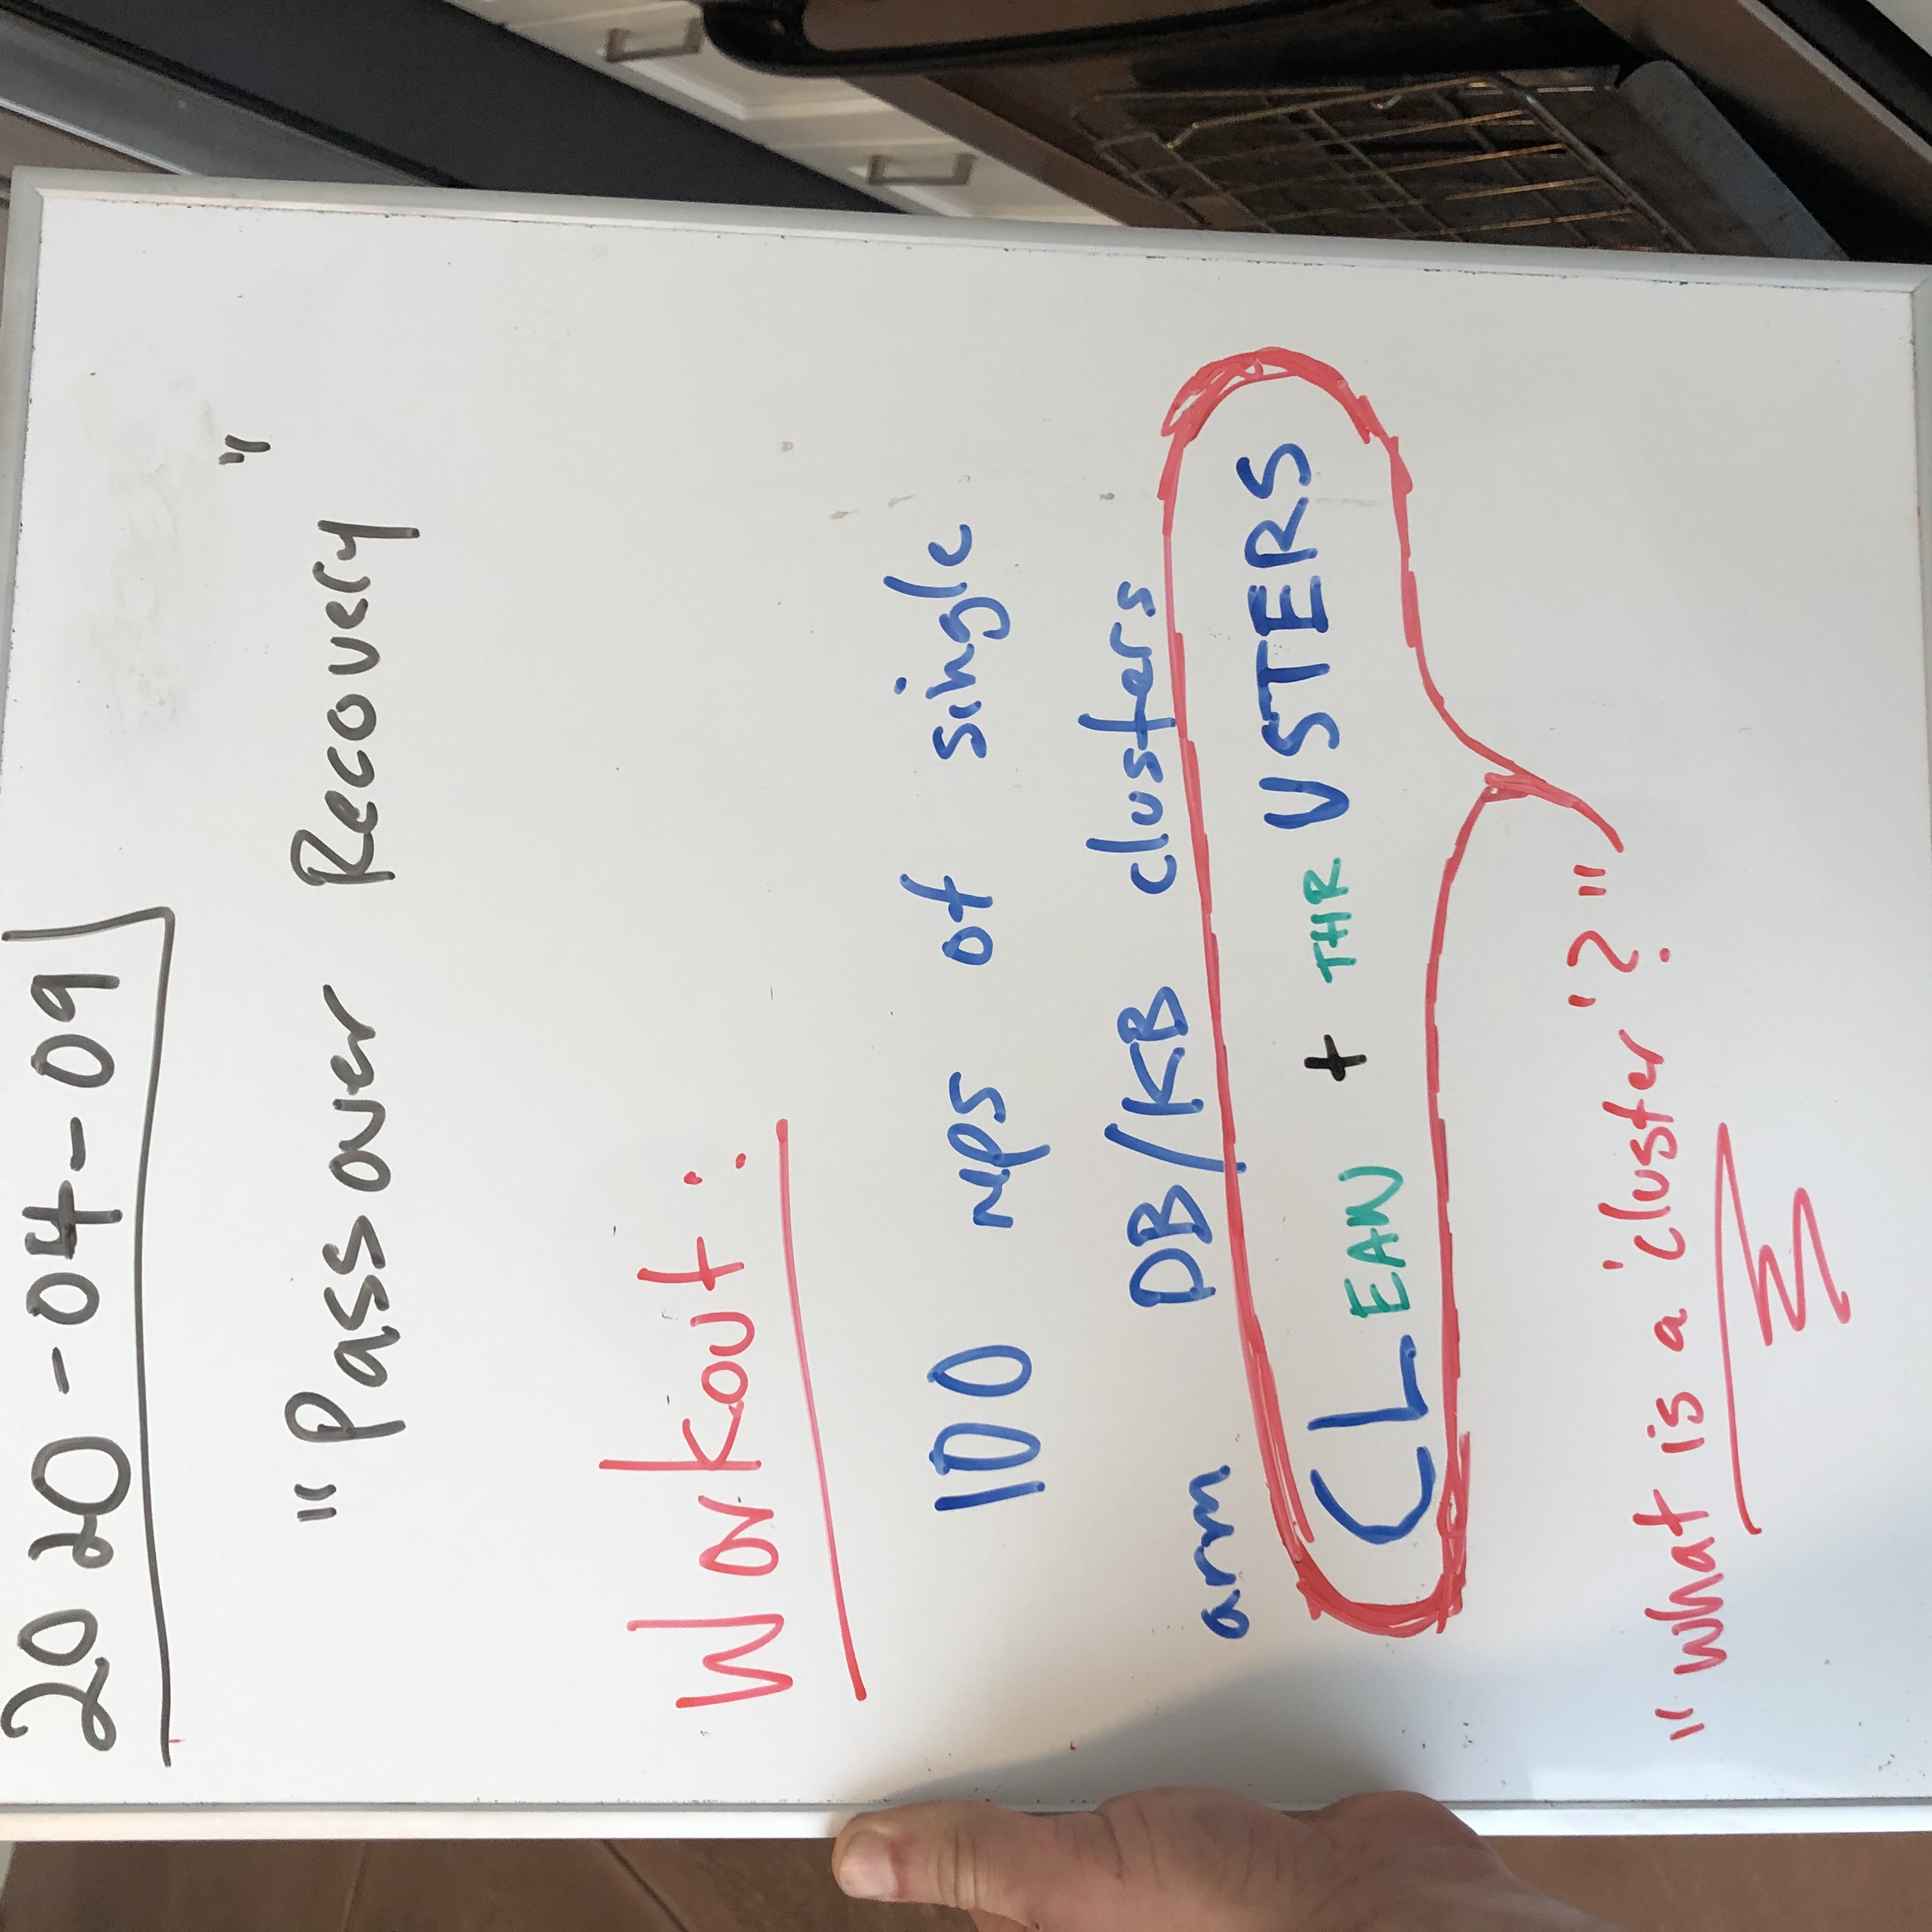 2020-04-09
"Passover Recovery"
Workout:
100 reps of single
arm DB/KB clusters
CLEAN + THRUSTERS
"what is a 'cluster'?"